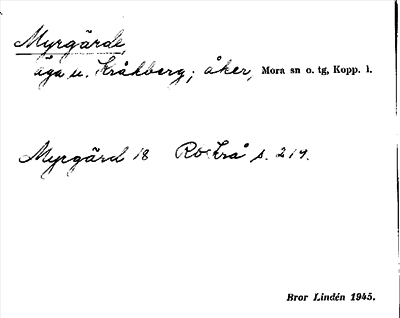 Myrgärde,
äga u. Kråkberg; åker, Mora sn o. tg, Kopp. l.
Myrgärd 18 Ro Krå s. 219.
Bror Lindén 1945.